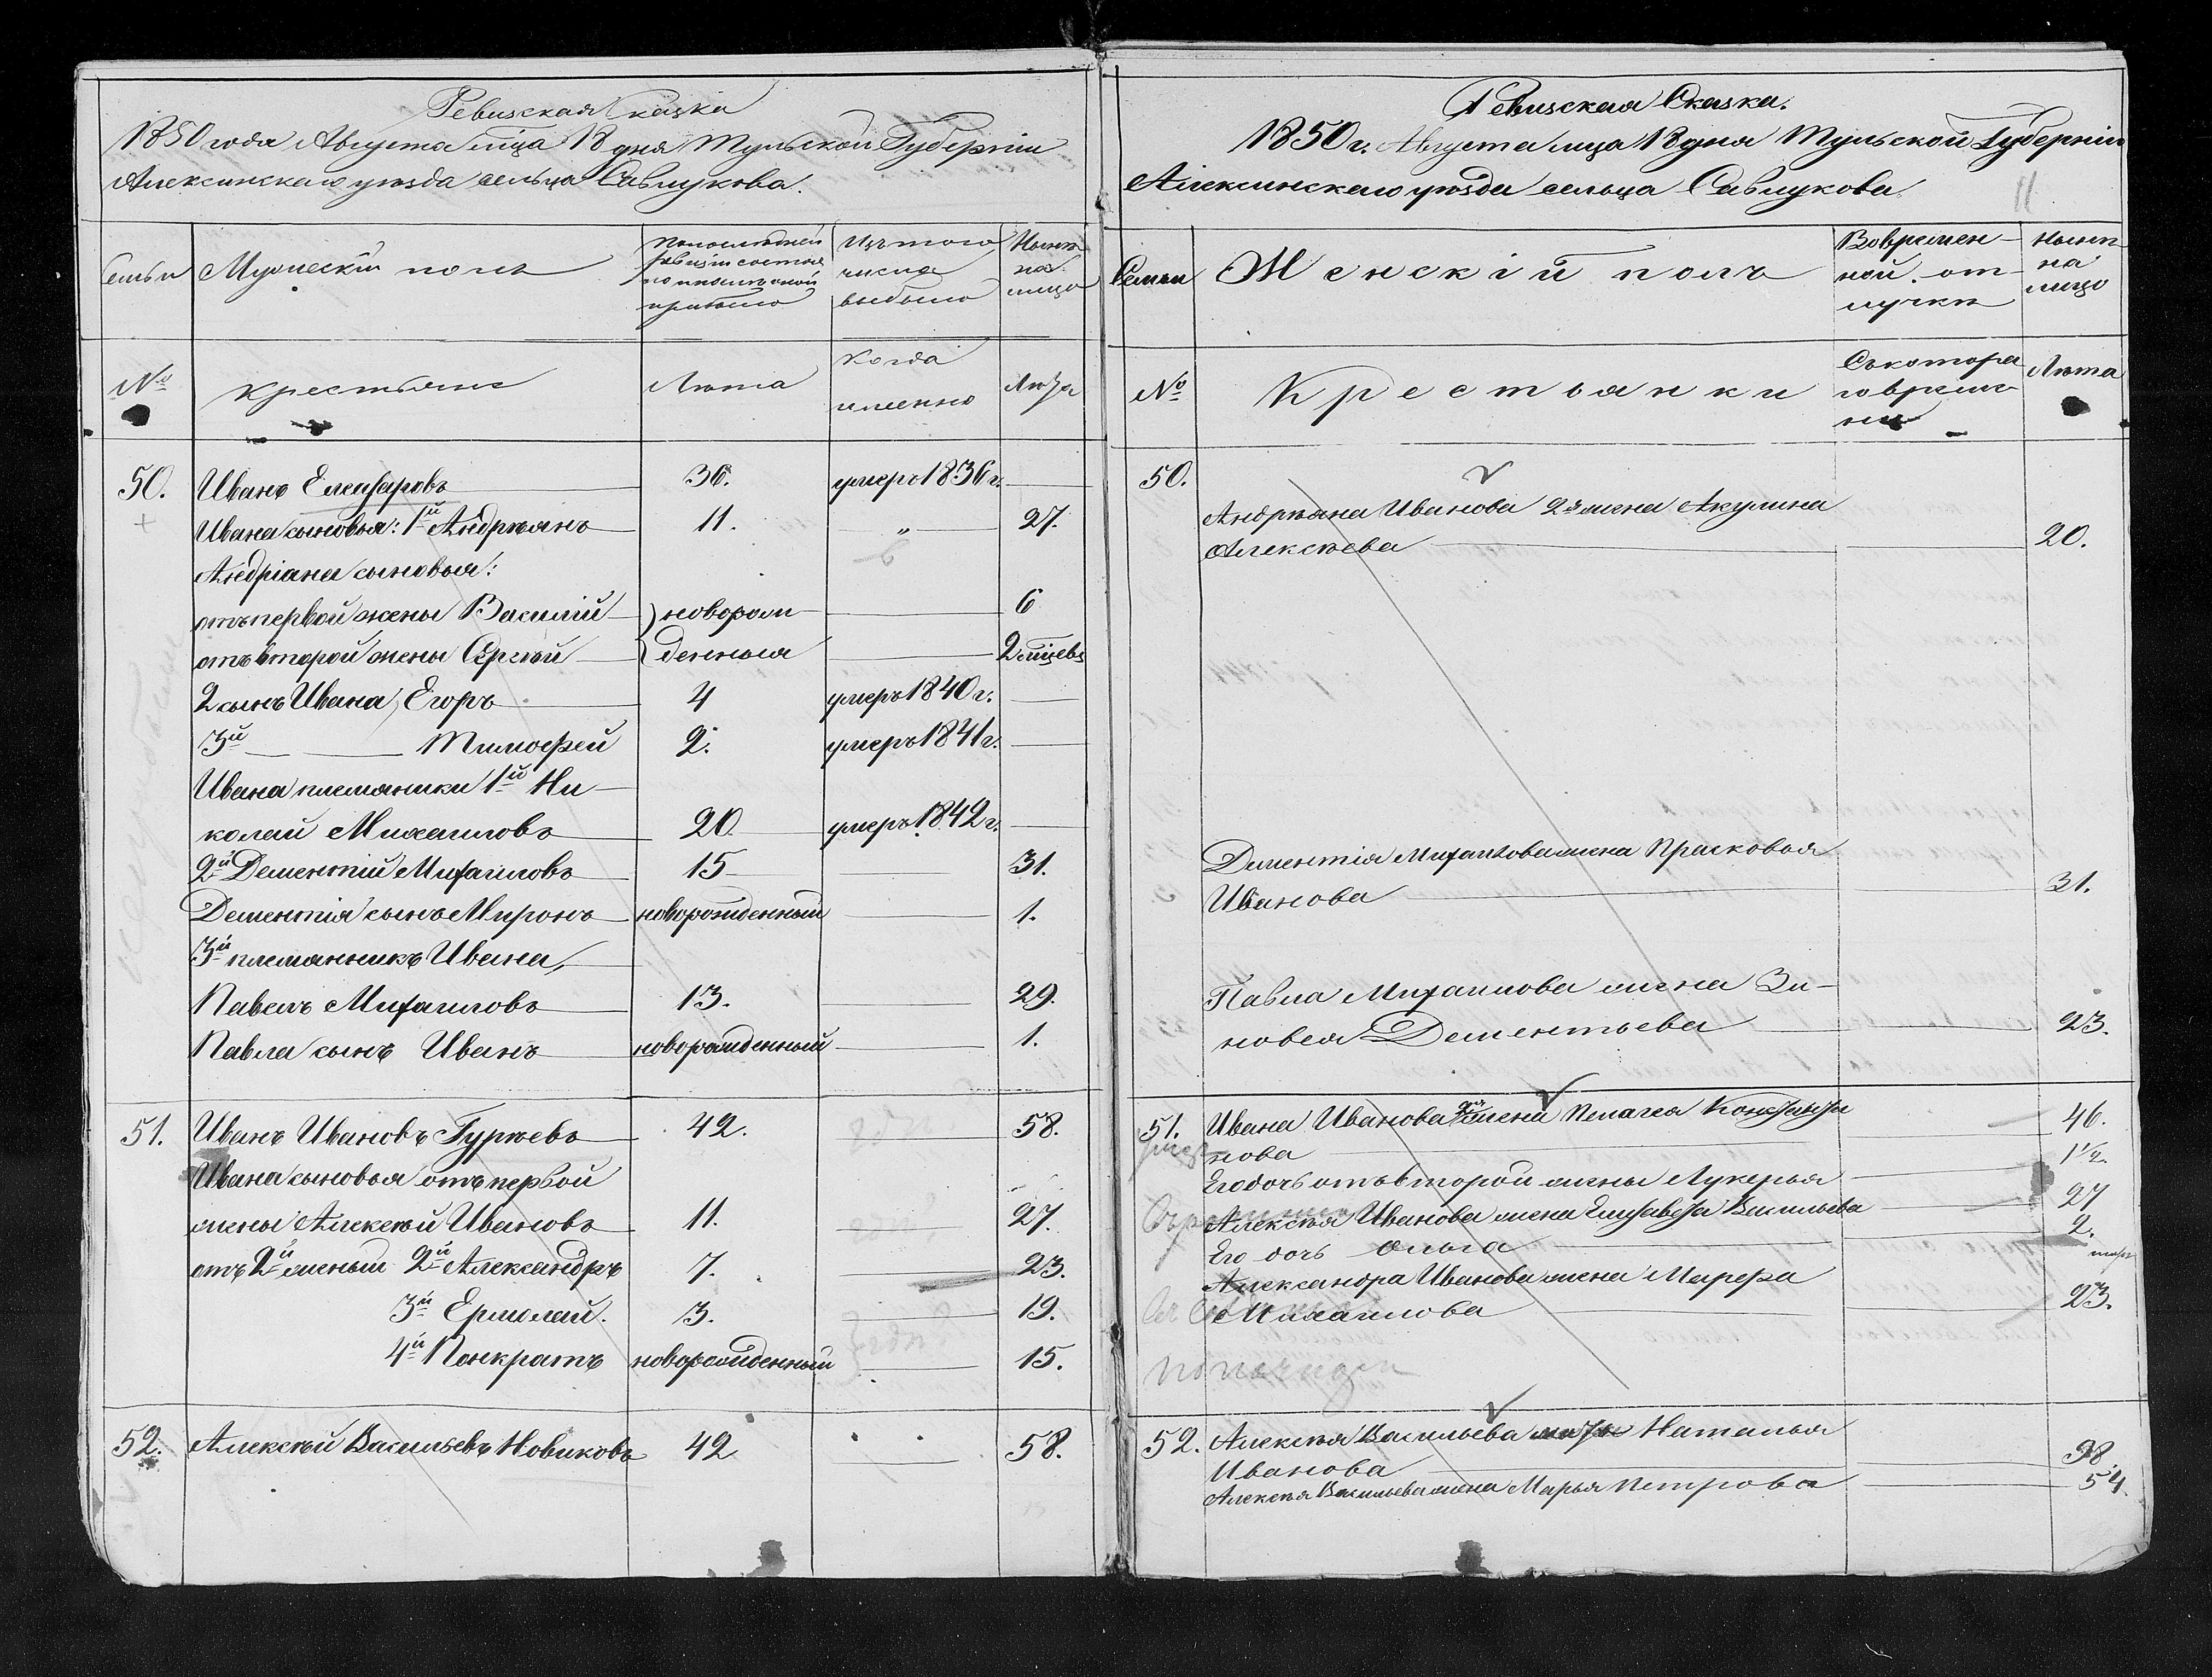 Ревизская Сказка
1850 года Августа мца 18 дня Тульской Губерніи
Алексинскаго уѣзда сельца Савлукова.
Семьи
Мужескій полъ
По последней
ревизіи состоя
ло и после оной
прибыло
Изъ того
числа
выбыло
Нынѣ
на
лицо
№
Крестьяне
Лѣта
Когда
именно
Лѣта
50. Иванъ Елизаровъ 36. умеръ 1836 г.
Ивана сыновья: 1й Андреянъ 11. „ 27.
Андріана сыновья:
отъ первой жены Василій новорож 6
отъ второй жены Сергѣй денныя 2 мцевъ
2 сынъ Ивана, Егоръ 4 умеръ 1840 г.
3й Тимофей 2. умеръ 1841 г.
Ивана племяники 1й Ни
колай Михаиловъ 20 умеръ 1842 г.
2й Дементій Михаиловъ 15 31.
Дементія сынъ Миронъ новорожденный 1.
3й племянникъ Ивана,
Павелъ Михаиловъ 13. 29.
Павла сынъ Иванъ новорожденный 1.
51. Иванъ Ивановъ Гурѣевъ 42. 58.
Ивана сыновья отъ первой
жены Алексѣй Ивановъ 11. 27.
отъ 2й жены 2й Александръ 7. 23.
3й Ермолай. 3. 19.
4й Понкратъ новорожденный 15.
52. Алексѣй Васильевъ Новиковъ 42 58.
Ревизская Сказка.
1850 г. Августа мца 18 дня Тульской Губерніи
Алексинскаго уѣзда сельца Савлукова.
11
Семьи
Женскій полъ
Во времен
ной от
лучкѣ
Нынѣ
на
лицо
№
Крестьянки
Съ котора
го време
ни
Лѣта
50.
Андреяна Иванова 2я жена Акулина
Алексѣева 20.
Дементія Михаилова жена Прасковья
Иванова 31.
Павла Михаилова жена Зи
новея Дементьева 23.
51. Ивана Иванова 2я жена Пелагея Константи 46.
нова
Его дочь отъ второй жены Лукерья 1½
Алексѣя Иванова жена Елизавета Васильева 27
Его дочь Ольга 2.
Александра Иванова жена Марфа
Михаилова 23.
52. Алексѣя Васильева мать Наталья
Иванова 98.
Алексѣя Васильева жена Марья Петрова 54